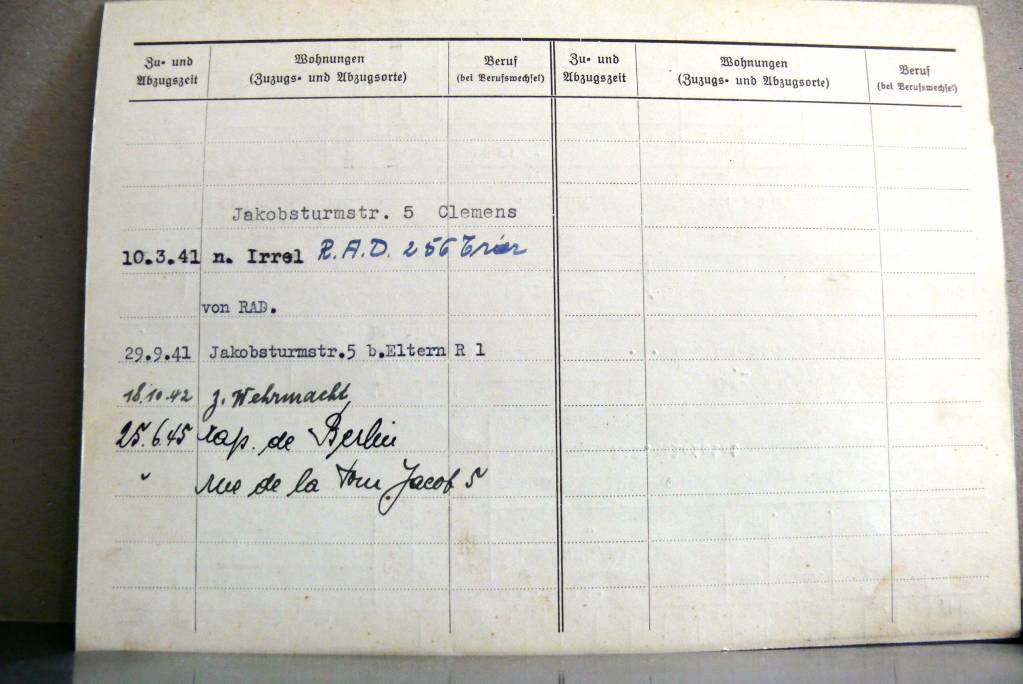 Zu- und Abzugszeit
Wohnungen (Zuzugs- und Abzugsorte)
Beruf (bei Berufswechsel)
Zu- und Abzugszeit
Wohnungen (Zuzugs- und Abzugsorte)
Beruf (bei Berufswechsel)
Jakobsturmstr. 5 Clemens
10.3.41 n. Irrel R.A.D. 256 Trier
von RAD.
29.9.41 Jakobsturmstr.5 b.Eltern R 1
18.10.42 z. Wehrmacht
25.6.45 rap. de Berlin
" rue de la Tour Jacob 5